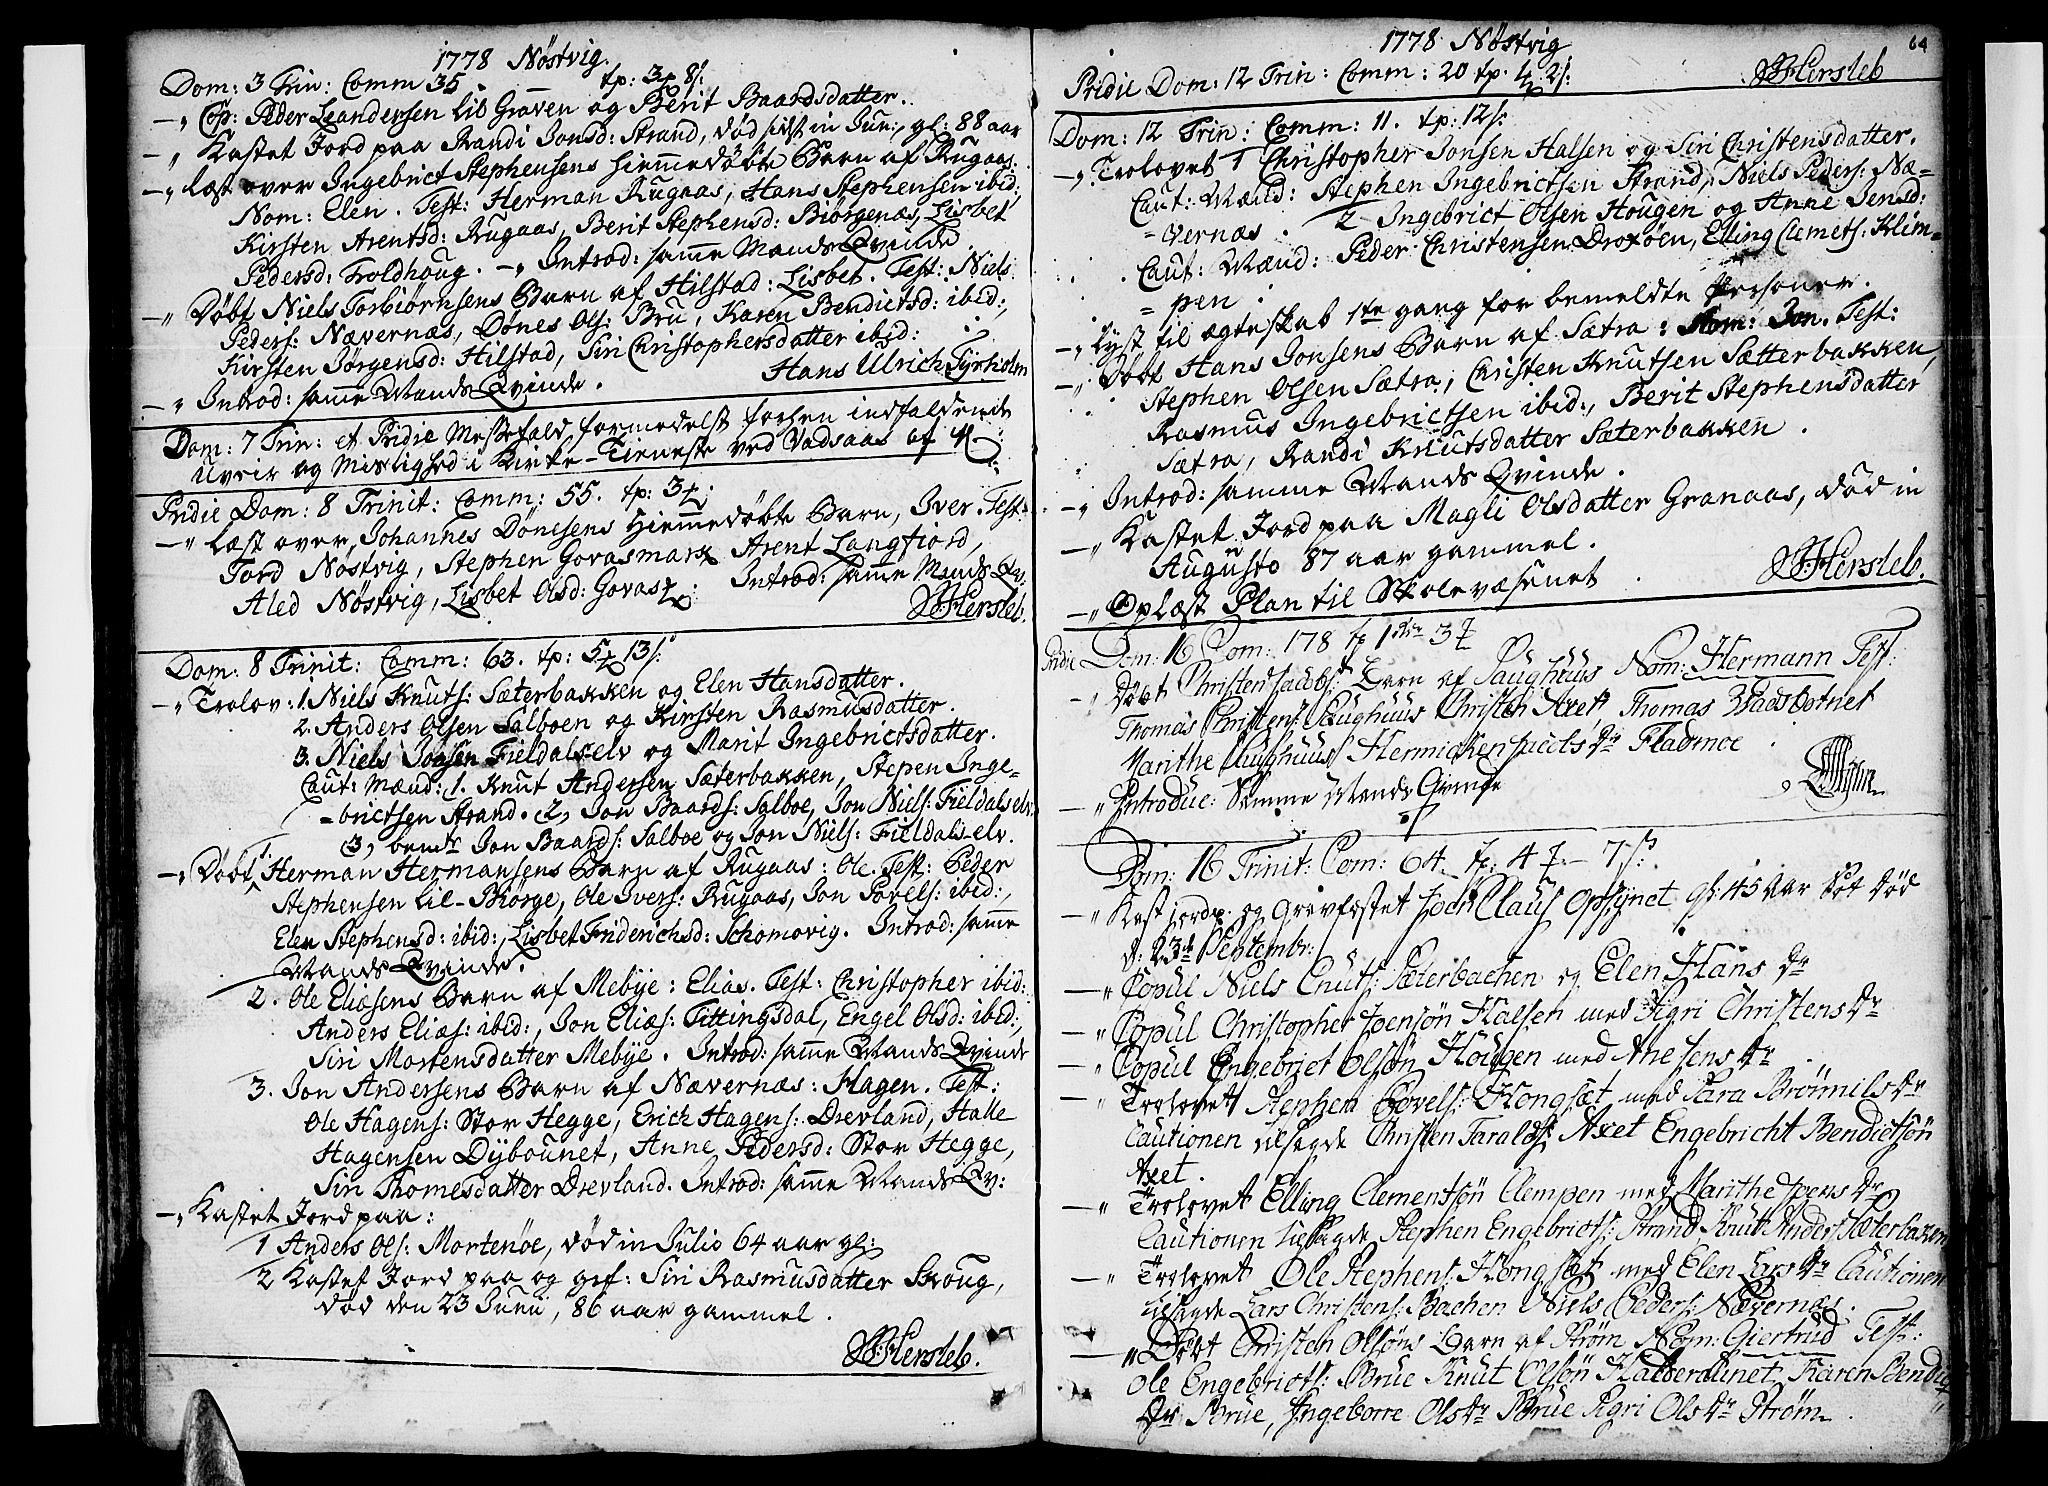 1778 Nøstvig.
Dom: 3 Trin: Comm 35. tp: 3 8/:
—„ Cop: Peder Leandersen lil Graven og Berit Baardsdatter.
—„ Kastet Jord paa Randi Jonsd: Strand, død sidst in Jun:, gl: 88 aar
—„ Læst over Ingebrict Stephensens hiemmedøbte Barn af Rugaas.
Nom: Elen. Test: Herman Rugaas, Hans Stephensen ibid:,
Kirsten Arentsd: Rugaas, Berit Stephensd: Biørgenæs, Lisbet
Pedersd: Troldhoug. —„ Introd: samme Mands Qvinde.
—„ Døbt Niels Torbiørnsens Barn af Hilstad: Lisbet. Test: Niels
Peders: Nævernæs, Dønes Ols: Bru, Karen Bendictsd: ibid:,
Kirsten Jørgensd: Hilstad, Siri Christophersdatter ibid:
—„ Introd: samme Mands Qvinde. Hans Ulrich Tyrholm
Dom: 7 Trin: et Pridie Messefald formedelst forhen indfaldende
Uveir og Mislighed i Kirke-Tieneste ved Vadsaas af
Pridie Dom: 8 Trinit: Comm: 55. tp: 3
—„ Læst over, Johannes Dønesens Hiemmedøbte Barn, Iver. Test:
Tord Nøstvig, Stephen Govasmark Arent Langfiord,
Aled Nøstvig, Lisbet Olsd: Govas: Introd: samme Mands Qv:
Hersleb.
Dom: 8 Trinit: Comm: 63. tp: 5 13/:
—„ Trolov: 1. Niels Knuts: Sæterbakken og Elen Hansdatter.
2. Anders Olsen Salboen og Kirsten Rasmusdatter.
3. Niels Jonsen Fieldalselv og Marit Ingebrictsdatter.
Caut: Mænd: 1. Knut Andersen Sæterbakken, Stepen Inge=
=brictsen Strand. 2, Jon Baards: Salboe, Jon Niels: Fieldalselv
3, bemte Jon Baards: Salboe og Jon Niels: Fieldals-elv.
—„ Døbt 1. Herman Hermansens Barn af Rugaas: Ole. Test: Peder
Stephensen lil-Biørge, Ole Ivers: Rugaas, Jon Povels: ibid:,
Elen Stephensd: ibid:, Lisbet Friderichsd: Schomovig. Introd: samme
Mands Qvinde.
2. Ole Eliæsens Barn af Mebye: Elias. Test: Christopher ibid:
Anders Eliæs: ibid:, Jon Eliæs: Tittingsdal, Engel Olsd: ibid:,
Siri Mortensdatter Mebye. Introd: samme Mands Qvinde
3. Jon Andersens Barn af Nævernæs: Hagen. Test:
Ole Hagens: Stor Hegge, Erich Hagens: Drevland, Halle
Hagensen Dybounet, Anne Pedersd: Stor Hegge,
Siri Thomesdatter Drevland. Introd: samme Mands Qv:
—„ Kastet Jord paa:
1 Anders Ols: Mortenøe, død in Julio 64 aar gl:
2 Kastet Jord paa og gef: Siri Rasmusdatter Skoug,
død den 23 Junii, 86 aar gammel.
Hersleb.
1778 Nøstvig
64
Pridie Dom: 12 Trin: Comm: 20 tp. 4 2/: Hersleb
Dom: 12 Trin: Comm: 11. tp: 12/:
—„ Trolovet 1 Christopher Jonsen Halsen og Siri Christensdatter.
Caut: Mænd: Stephen Ingebrictsen Strand, Niels Peders: Næ=
=vernæs. 2 Ingebrict Olsen Hougen og Anne Jensd:
Caut: Mænd: Peder Christensen Droxøen, Elling Clemets: Klim=
=pen.
—„ Lyst til ægteskab 1ste gang for bemeldte Personer.
—„ Døbt Hans Jonsens Barn af Sætra: Nom: Jon. Test:
Stephen Olsen Sætra, Christen Knutsen Sætterbakken,
Rasmus Ingebrictsen ibid:, Berit Stephensdatter
Sætra, Randi Knutsdatter Sæterbakken.
—„ Introd: samme Mands Qvinde.
—„ Kastet Jord paa Magli Olsdatter Granaas, død in
Augusto 87 aar gammel.
—„ Oplæst Plan til Skolevæsenet. Hersleb.
Pridie Dom: 16 Com: 178 tp 1 3
—„ Døbt Christen Jacobs: Barn af Saughuus Nom: Hermann Test:
Thomas Christens: Saughuus Christen Axet Thomas Badsbotnet
Marithe Saughuus Hermicken Jacobsdr Fladmoe.
—„ Introduc: Samme Mands Qvinde
Dom: 16 Trinit: Com: 64. tp: 4 — 7/:
—„ Kast jordp. og Gravfæstet Joen Claus Opsynet gl: 45 aar død
d: 23de Septembr:
—„ Copul Niels Cnuts: Sæterbachen og Elen Hans dr
—„ Copul Christopher Joensøn Halsen med Sigri Christens dr
—„ Copul Engebrict Olsøn Hougen med Ane Jens dr.
—„ Trolovet Stephen Povels: Hongset med Sara Brømils dr
Cautionen tilsagde Christen Taralds: Axet Engebricht Bendictsøn
Axet.
—„ Trolovet Elling Clementsøn Clempen med Marithe Joens dr
Cautionen tilsagde Stephen Engebricts: Strand Knut Anders: Sæterbaken
—„ Trolovet Ole Stephens: Hongset med Elen Lars dr Cautionen
tilsagde Lars Christens: Bachen Niels Peders: Nævernæs.
—„ Døbt Christen Olsøns Barn af Strøm Nom: Giertrud Test:
Ole Engebricts: Brue Knut Olsøn Karen Bendic
dr Brue, Ingeborre Olsdr Brue Sigri Ols dr Strøm.